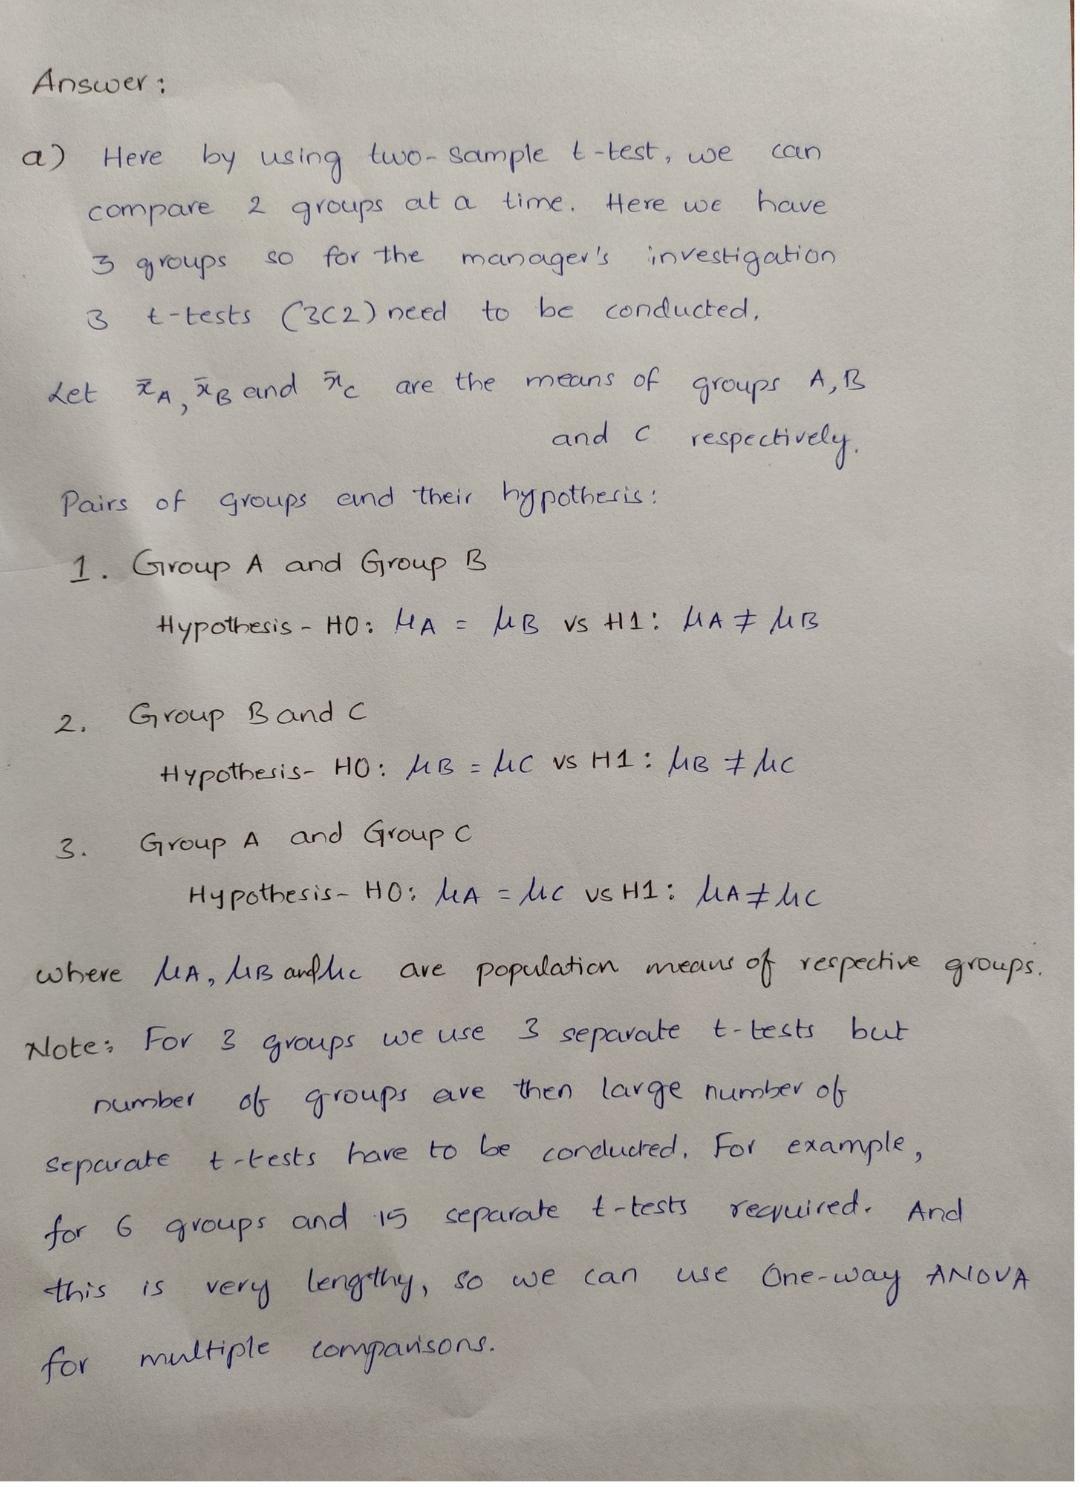 Answer:
a) Here by using two-sample t-test, we can
compare 2 groups at a time. Here we have
3 groups so for the manager's investigation
3 t-tests (3C2) need to be conducted.
Let x̄A, x̄B and x̄c are the means of groups A, B
and C respectively.
Pairs of groups and their hypothesis:
1. Group A and Group B
Hypothesis - H0: μA = μB vs H1: μA ≠ μB
2. Group B and C
Hypothesis- H0: μB = μC vs H1: μB ≠ μC
3. Group A and Group C
Hypothesis- H0: μA = μC vs H1: μA ≠ μC
where μA, μB and μc are population means of respective groups.
Note: For 3 groups we use 3 separate t-tests but
number of groups are then large number of
separate t-tests have to be conducted. For example,
for 6 groups and 15 separate t-tests required. And
this is very lengthy, so we can use One-way ANOVA
for multiple comparisons.